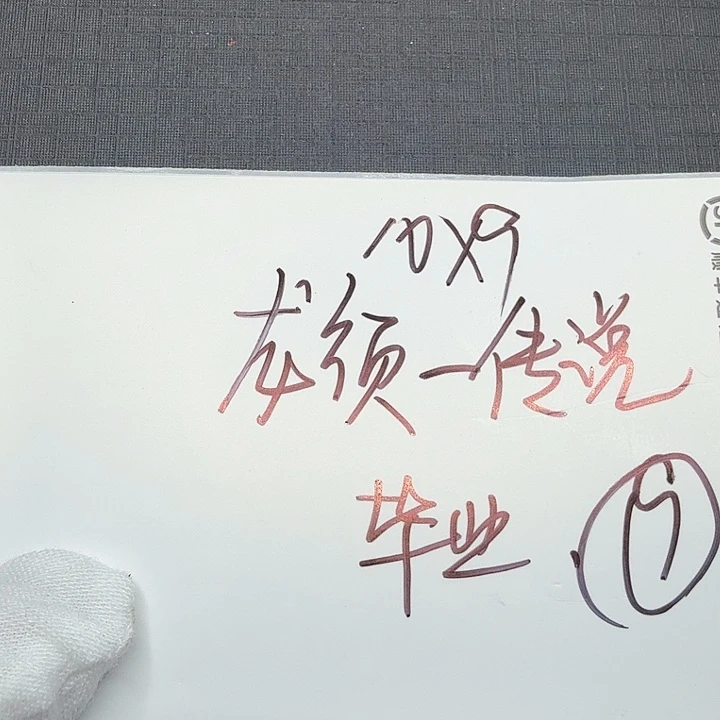 10X9
龙须一传说
毕业